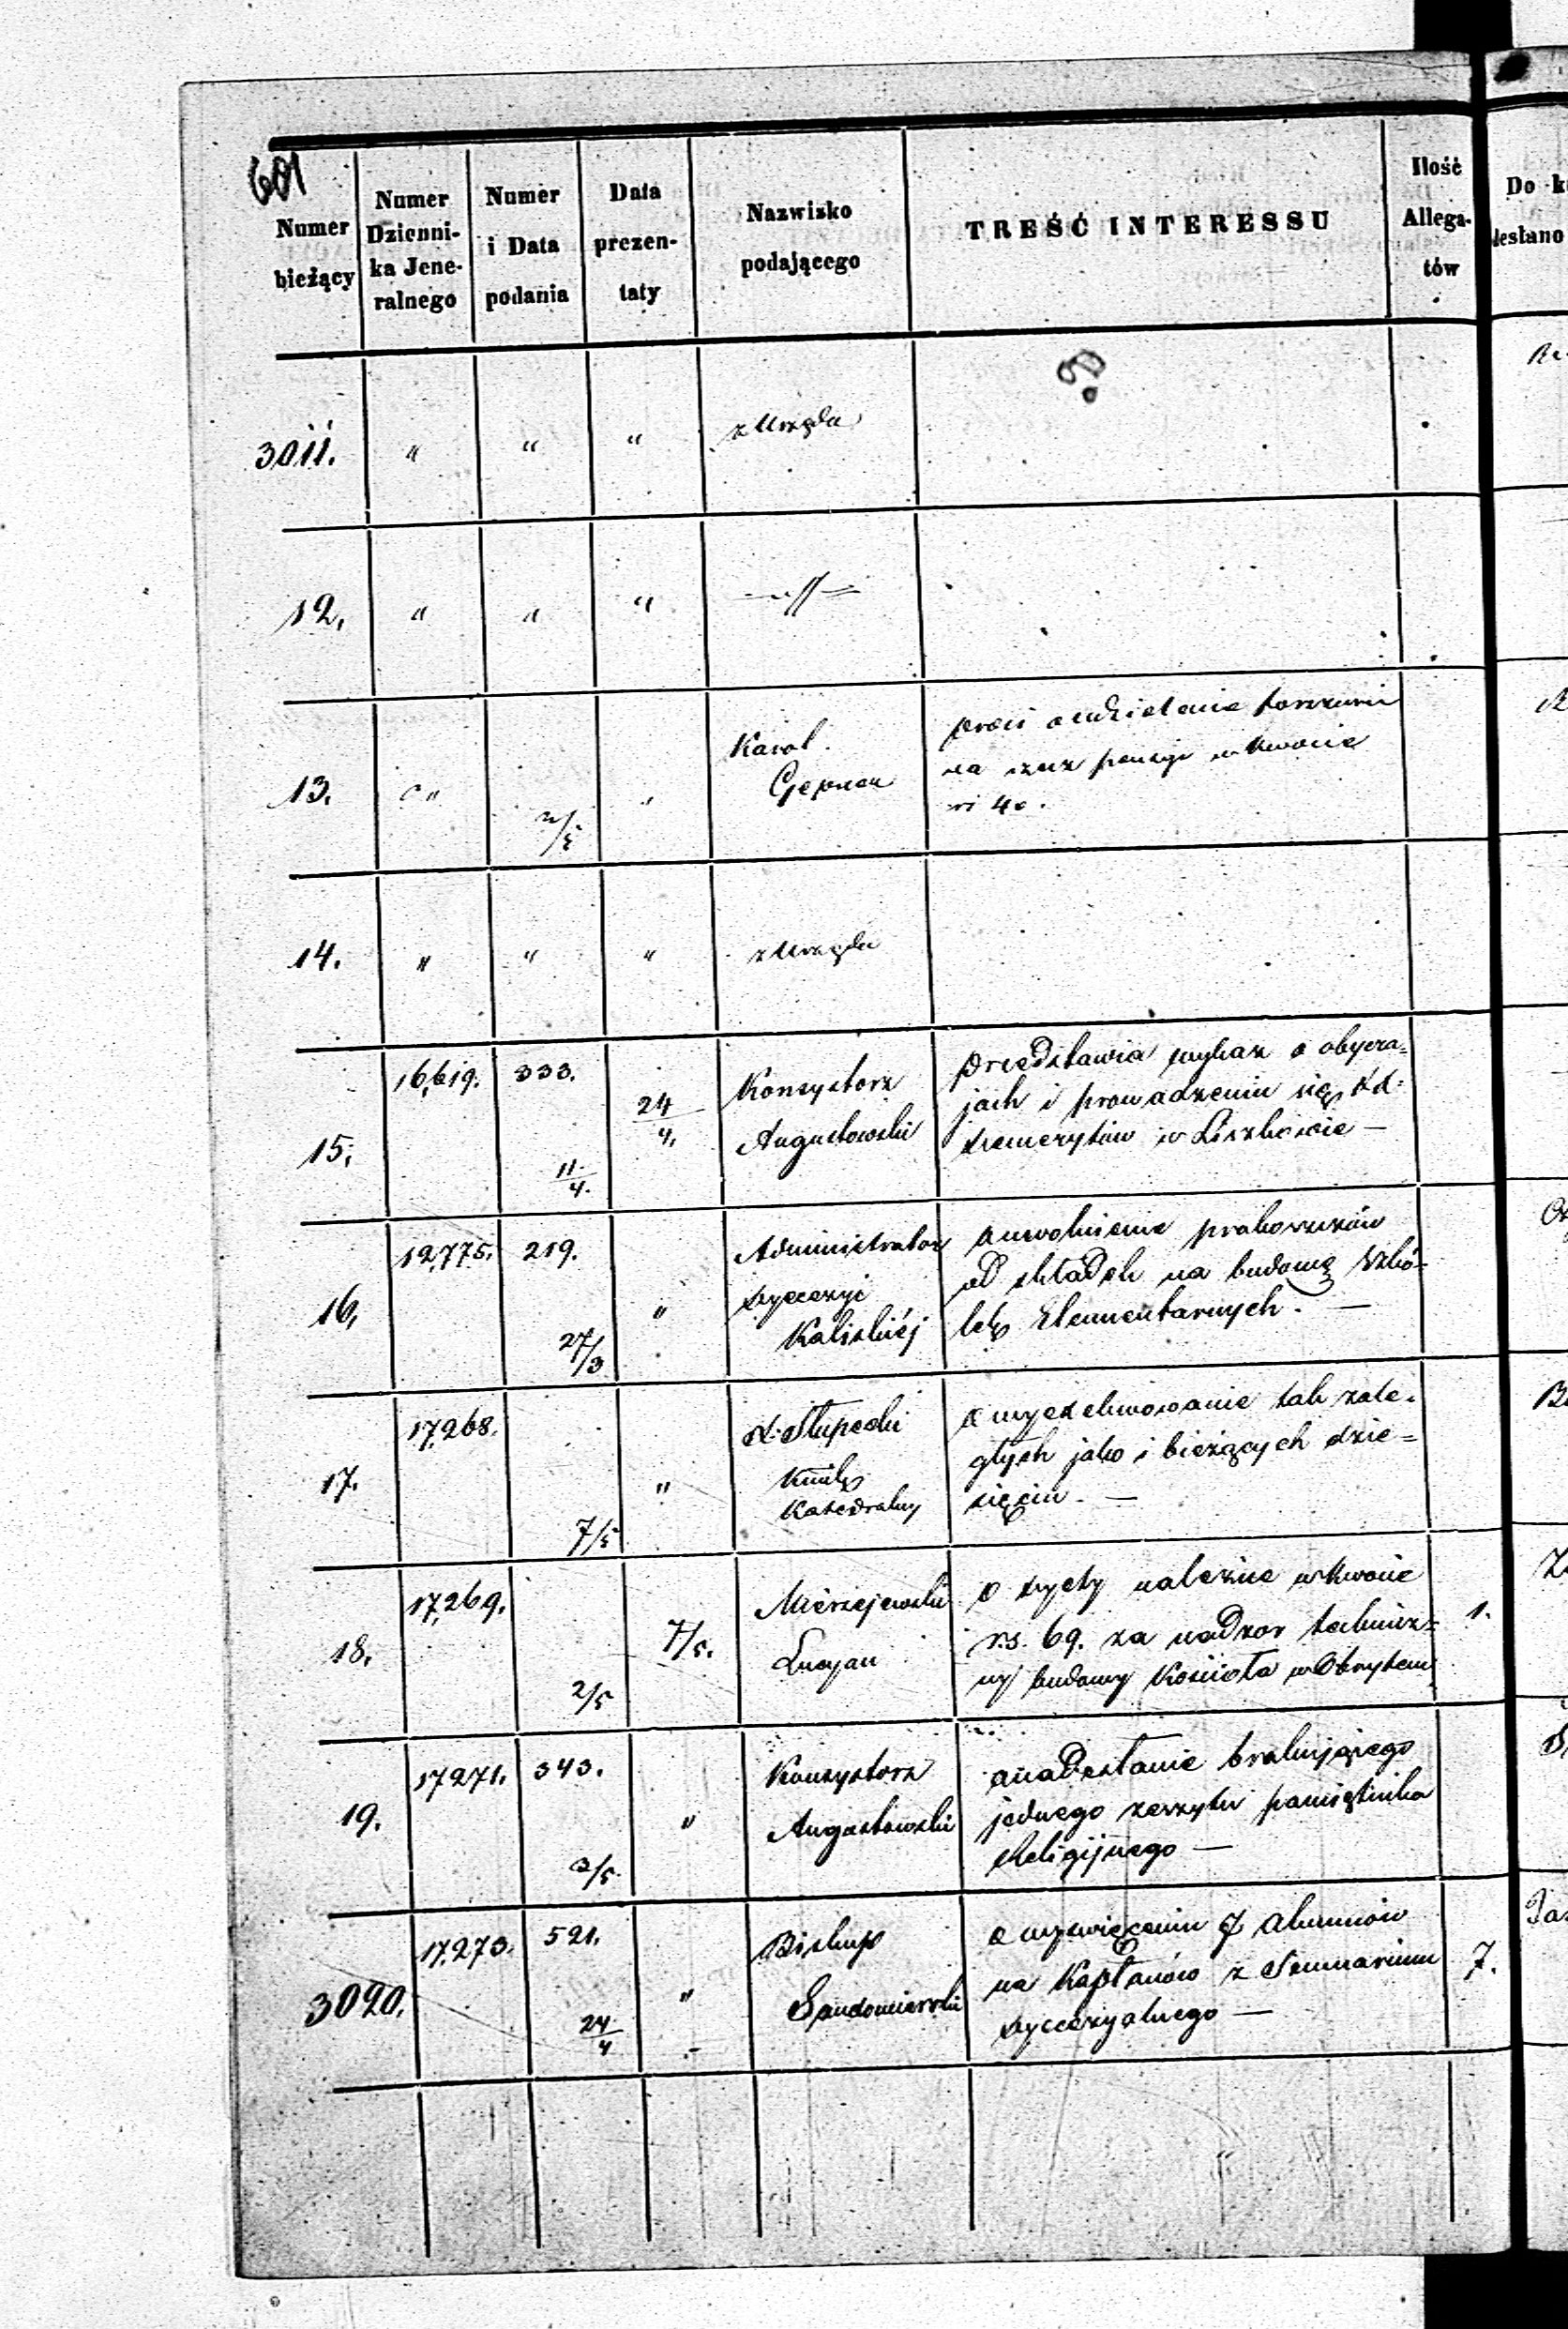 601
Numer bieżący
Numer Dzienni-
ka Jene-
ralnego
Numer
i Data
podania
Data
prezen-
taty
Nazwisko
podającego
TREŚĆ INTERESSU
Ilość
Allega-
tów
Do k
desłano
3011. " " " z Urzędu
12. " " " —"—
13. " 2/5 "
Karol
prosi o udzielenie
na pensyi w kwocie
rs 40.
14. " " " z Urzędu
15. 16,619. 333. 11/4. 24/4.
Konsystorz
Augustowski
Przedstawia wykaz o obycza-
jach i prowadzeniu się Xd.
demerytów w Liszkowie —
16. 12,775. 219. 27/3 "
Administrator
dyecezyi
Kaliskiéj
o uwolnienie proboszczów
od składek na budowę Szkó-
łek Elementarnych. —
17. 17,268. 7/5 "
X. Słupecki
Katedralny
o wyexekwowanie tak zale-
głych jako i bieżących dzie-
sięcin. —
18. 17,269. 2/5 7/5.
Mierzejewski
Lucyan
o dyety należne w kwocie
rs. 69. za nadzor technicz-
ny budowy Kościoła w Obrytem
1.
19. 17271. 343. 3/5. "
Konsystorz
Augustowski
o nadesłanie brakującego
jednego zeszytu pamiętnika
Religijnego —
3020. 17,273. 521. 24/4 "
Biskup
Sandomierski
o wyświęceniu 7 Alumnów
na Kapłanów z Seminarium
dyecezyalnego —
7.